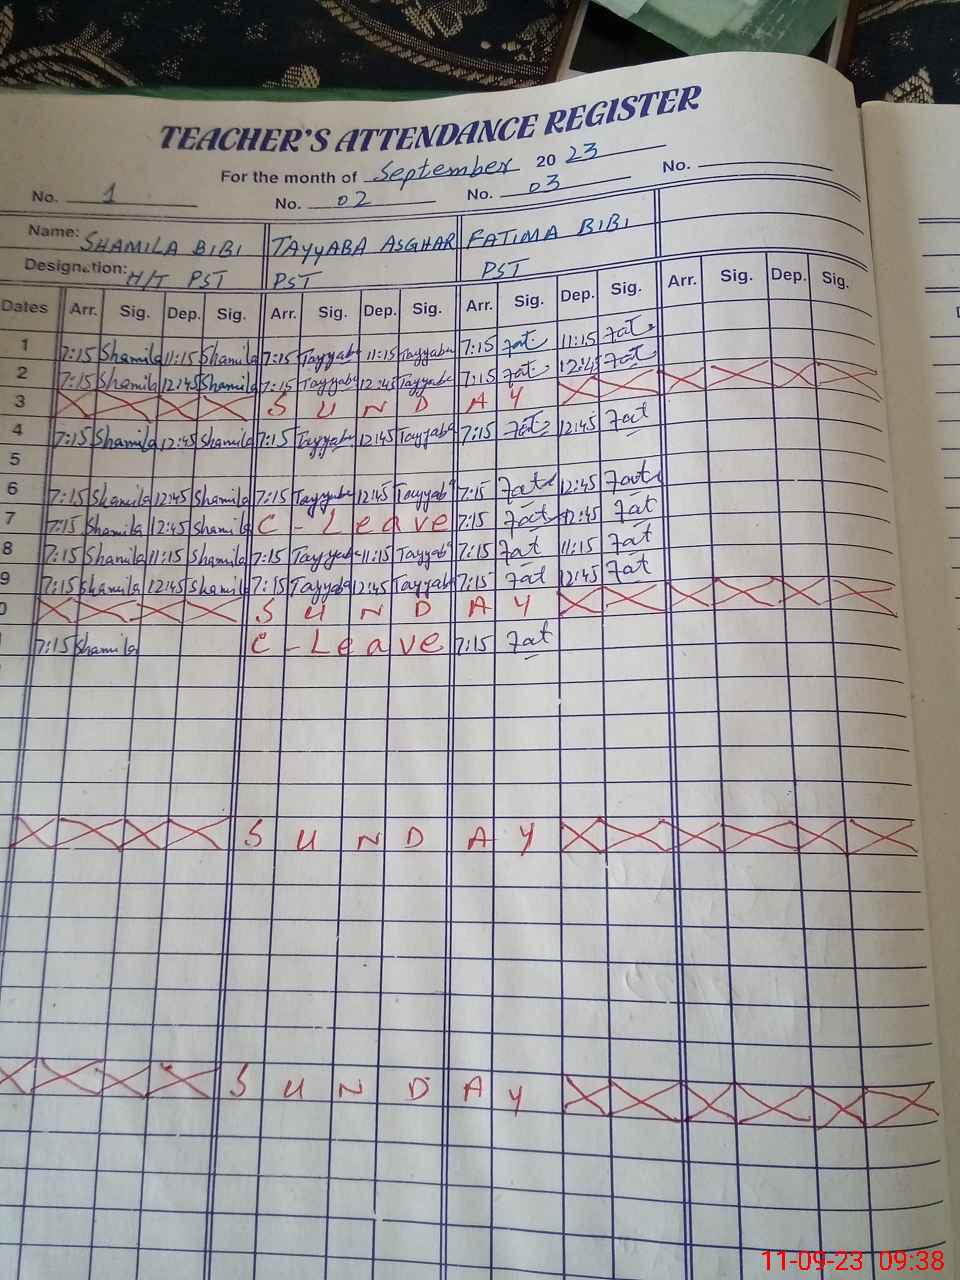 TEACHER'S ATTENDANCE REGISTER
For the month of September 2023
No. 1 No. 02 No. 03 No.
Name: SHAMILA BIBI TAYYABA ASGHAR FATIMA BIBI
Designation: H/T PST PST PST
Dates Arr. Sig. Dep. Sig. Arr. Sig. Dep. Sig. Arr. Sig. Dep. Sig. Arr. Sig. Dep. Sig.
1 7:15 Shamila 11:15 Shamila 7:15 Tayyaba 11:15 Tayyaba 7:15 Fat 11:15 Fat
2 7:15 Shamila 12:45 Shamila 7:15 Tayyaba 12:45 Tayyaba 7:15 Fat 12:45 Fat
3 SUNDAY
4 7:15 Shamila 12:45 Shamila 7:15 Tayyaba 12:45 Tayyaba 7:15 Fat 12:45 Fat
5
6 7:15 Shamila 12:45 Shamila 7:15 Tayyaba 12:45 Tayyab 7:15 Fat 12:45 Fat
7 7:15 Shamila 12:45 Shamila C-Leave 7:15 Fat 12:45 Fat
8 7:15 Shamila 11:15 Shamila 7:15 Tayyaba 11:15 Tayyab 7:15 Fat 11:15 Fat
9 7:15 Shamila 12:45 Shamila 7:15 Tayyaba 12:45 Tayyab 7:15 Fat 12:45 Fat
0 SUNDAY
7:15 Shamila C-Leave 7:15 Fat
SUNDAY
SUNDAY
11-09-23 09:38